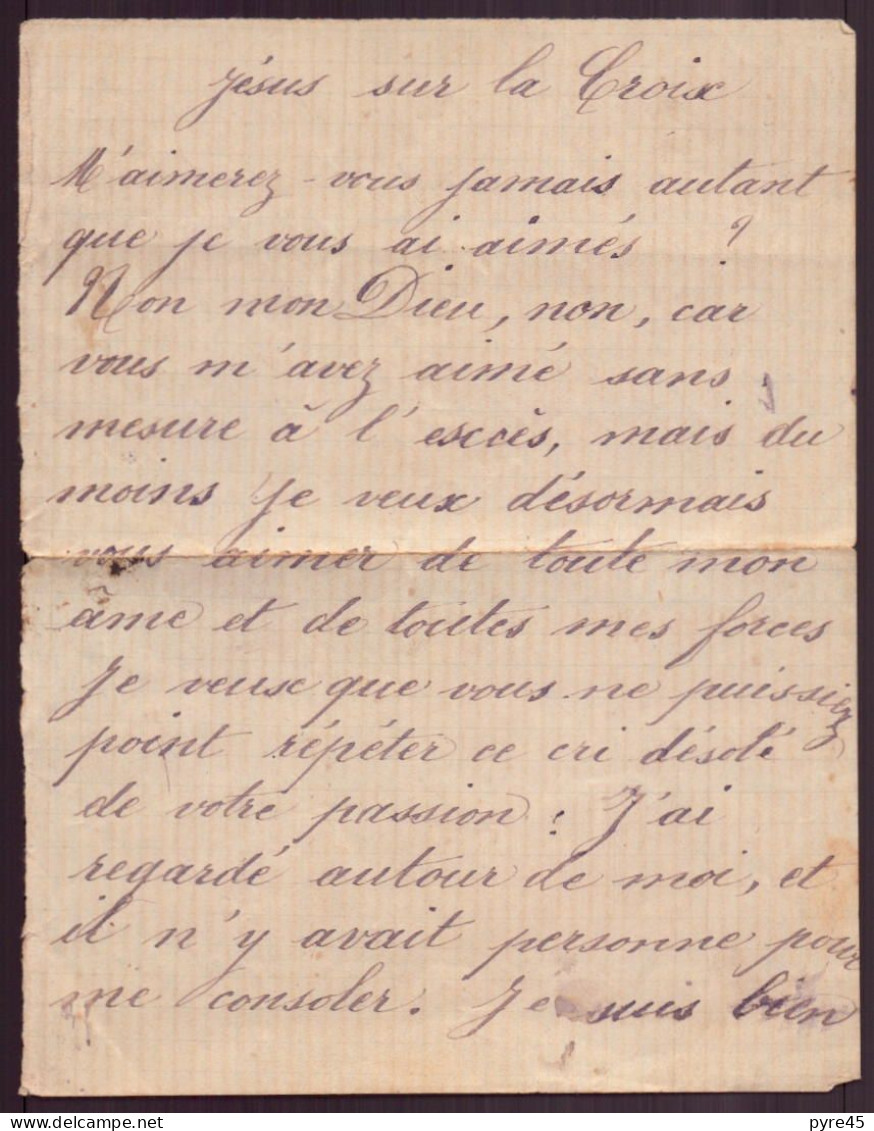 Jésus sur la Croix
M'aimerez-vous jamais autant
que je vous ai aimés ?
Non mon Dieu, non, car
vous m'avez aimé sans
mesure à l'excès, mais du
moins je veux désormais
vous aimer de toute mon
ame et de toutes mes forces
Je veux que vous ne puissiez
point répéter ce cri désolé
de votre passion : J'ai
regardé autour de moi, et
il n'y avait personne pour
me consoler. Je suis bien
delcampe.net
pyre45